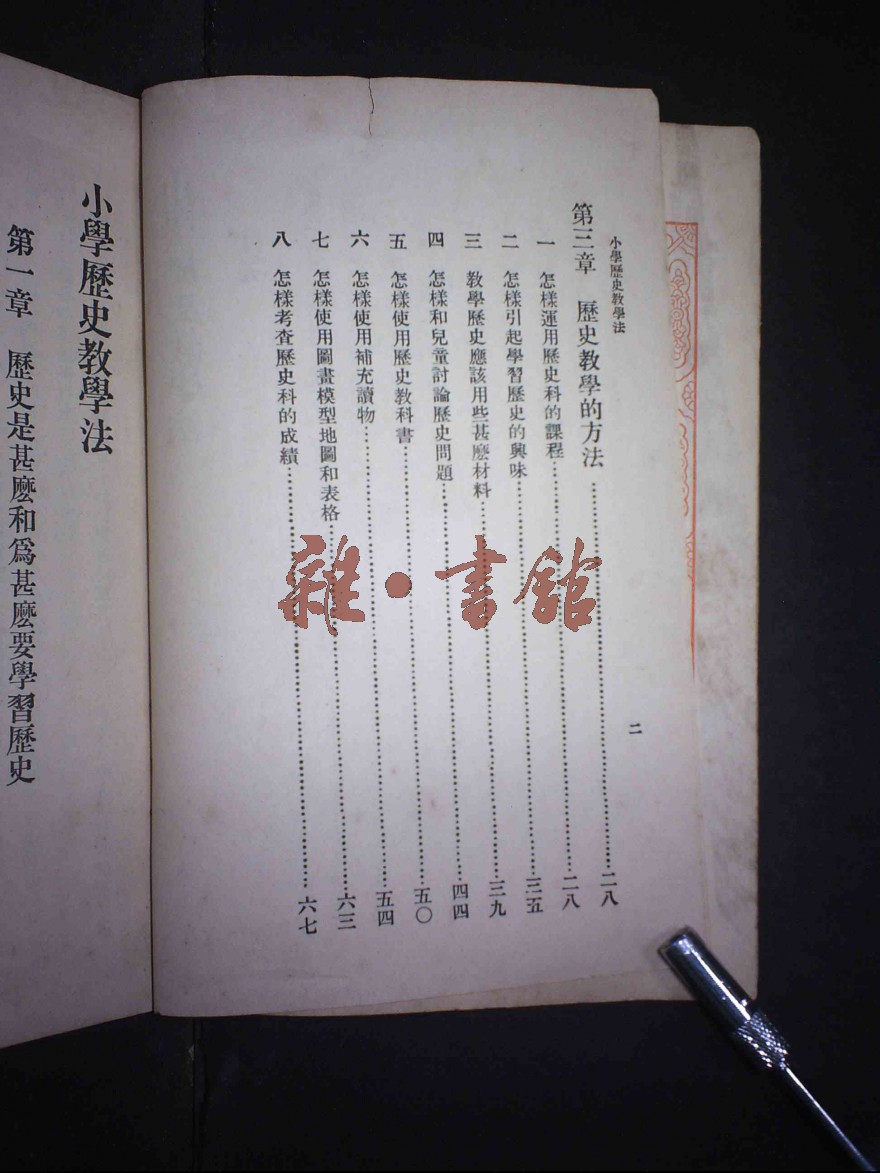 小學歷史教學法
第三章　歷史教學的方法……二八
一　怎樣運用歷史科的課程……二八
二　怎樣引起學習歷史的興味……三五
三　教學歷史應該用些甚麼材料……三九
四　怎樣和兒童討論歷史問題……四四
五　怎樣使用歷史教科書……五〇
六　怎樣使用補充讀物……五四
七　怎樣使用圖畫模型地圖和表格……六三
八　怎樣考查歷史科的成績……六七
二
小學歷史教學法
第一章　歷史是甚麼和爲甚麼要學習歷史
雜·書館